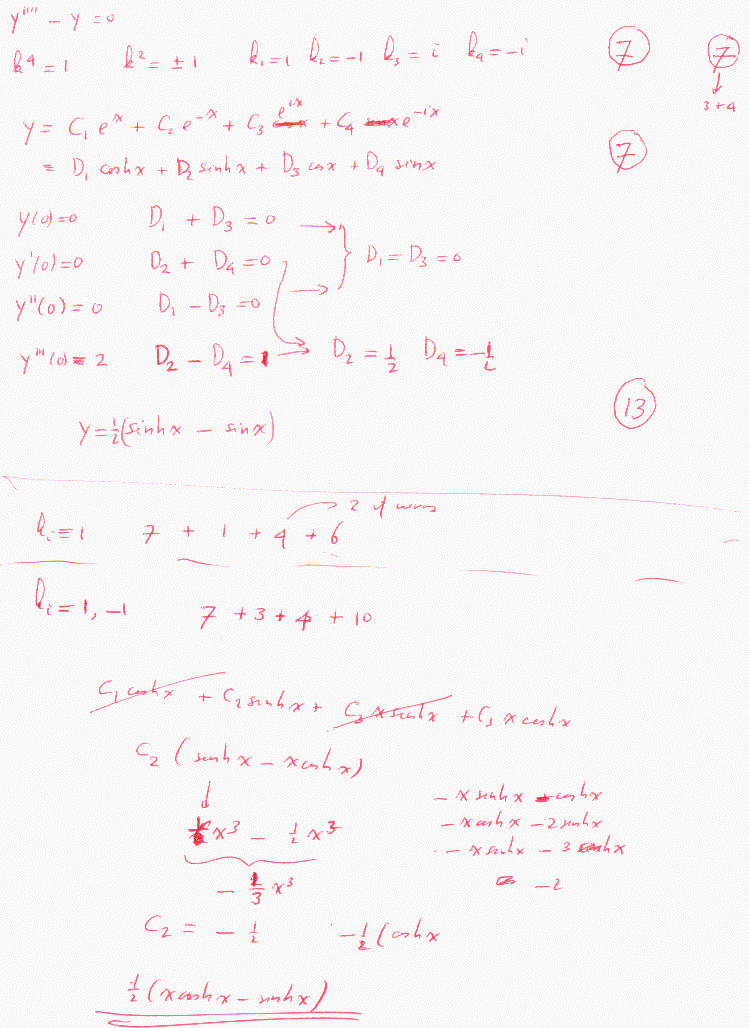 y'''' - y = 0
k⁴ = 1 k² = ± 1 k₁ = 1 k₂ = -1 k₃ = i k₄ = -i 7 7
3+4
y = C₁ e^x + C₂ e^-x + C₃ e^ix + C₄ e^-ix
= D₁ coshx + D₂ sinhx + D₃ cosx + D₄ sinx 7
y(0)=0 D₁ + D₃ = 0
y'(0)=0 D₂ + D₄ = 0 D₁ = D₃ = 0
y''(0) = 0 D₁ - D₃ = 0
y'''(0) = 2 D₂ - D₄ = 1 → D₂ = 1/2 D₄ = -1/2
13
y = 1/2 (sinhx - sinx)
2 if
kᵢ = 1 7 + 1 + 4 + 6
kᵢ = 1, -1 7 + 3 + 4 + 10
C₁ coshx + C₂ sinhx + C₃ x sinhx + C₃ x coshx
C₂ (sinhx - x coshx)
- x sinhx - coshx
- x coshx - 2 sinhx
1/6 x³ - 1/2 x³
- x sinhx - 3 coshx
- 2
- 1/3 x³
C₂ = - 1/2 - 1/2 (coshx
1/2 (x coshx - sinhx)